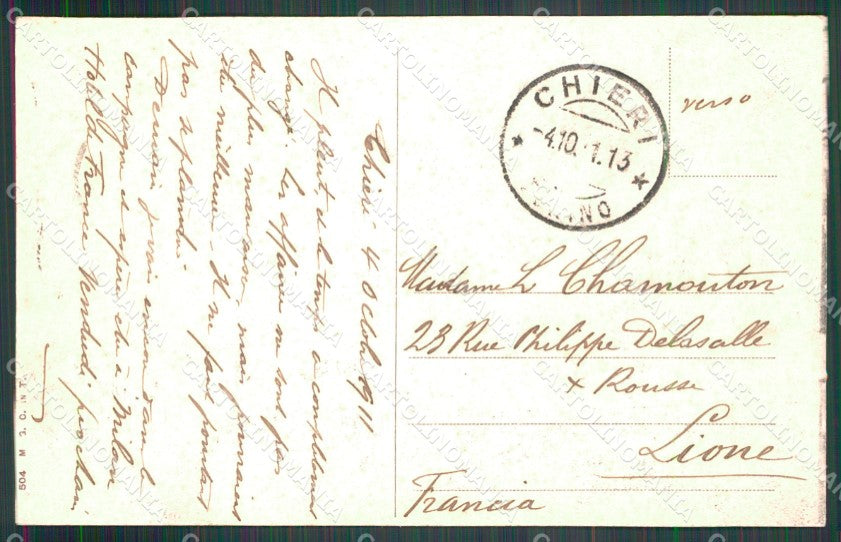 Chieri 4 Octob 1911
Il pleut et le temps a complètement
changé. Les affaires ne sont pas
des plus mauvaises mais j'aimerais
the meilleures. Il ne faut pourtant
pas se plaindre
Demain je vais encore dans la
campagne et espère être à Milan
France Vendredi prochain
504 M 3. C. N T.
CHIERI
-4.10. 11.13
TORINO
verso
Madame L Chamouton
23 Rue Philippe Delasalle
x Rousse
Lione
Francia
CARTOLINOMANIA